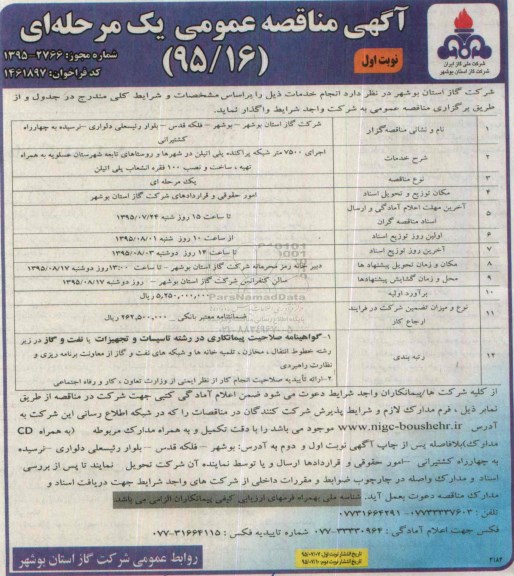 آگهی مناقصه عمومی یک مرحله‌ای
(۹۵/۱۶)
نوبت اول
شماره مجوز: ۲۷۶۶-۱۳۹۵
کد فراخوان: ۱۴۶۱۸۹۷
شرکت ملی گاز ایران
شرکت گاز استان بوشهر
شرکت گاز استان بوشهر در نظر دارد انجام خدمات ذیل را براساس مشخصات و شرایط کلی مندرج در جدول و از
طریق برگزاری مناقصه عمومی به شرکت واجد شرایط واگذار نماید.
۱ نام و نشانی مناقصه‌گزار شرکت گاز استان بوشهر – بوشهر – فلکه قدس – بلوار رئیسعلی دلواری –نرسیده به چهارراه
کشتیرانی
۲ شرح خدمات اجرای ۷۵۰۰ متر شبکه پراکنده پلی اتیلن در شهرها و روستاهای تابعه شهرستان عسلویه به همراه
تهیه ، ساخت و نصب ۱۰۰ فقره انشعاب پلی اتیلن
۳ نوع مناقصه یک مرحله ای
۴ مکان توزیع و تحویل اسناد امور حقوقی و قراردادهای شرکت گاز استان بوشهر
۵ آخرین مهلت اعلام آمادگی و ارسال
اسناد مناقصه گران تا ساعت ۱۵ روز شنبه ۱۳۹۵/۰۷/۲۴
۶ اولین روز توزیع اسناد از ساعت ۱۰ روز شنبه ۱۳۹۵/۰۸/۰۱
۷ آخرین روز توزیع اسناد تا ساعت ۱۴ روز دوشنبه ۱۳۹۵/۰۸/۰۳
۸ مکان و زمان تحویل پیشنهاد ها دبیر خانه رمز محرمانه شرکت گاز استان بوشهر – تا ساعت ۱۳:۰۰ روز دوشنبه ۱۳۹۵/۰۸/۱۷
۹ محل و زمان گشایش پیشنهادها سالن کنفرانس شرکت گاز استان بوشهر – روز دوشنبه ۱۳۹۵/۰۸/۱۷
۱۰ برآورد اولیه ۵,۲۵۰,۰۰۰,۰۰۰ ریال
۱۱ نوع و میزان تضمین شرکت در فرایند
ارجاع کار ضمانتنامه معتبر بانکی ۲۶۲,۵۰۰,۰۰۰ ریال
۱۲ رتبه بندی ۱-گواهینامه صلاحیت پیمانکاری در رشته تاسیسات و تجهیزات یا نفت و گاز در زیر
رشته خطوط انتقال ، مخازن ، تلمبه خانه ها و شبکه های نفت و گاز از معاونت برنامه ریزی و
نظارت راهبردی
۲-ارائه تأییدیه صلاحیت انجام کار از نظر ایمنی از وزارت تعاون ، کار و رفاه اجتماعی
ParsNamadData
از کلیه شرکت ها/پیمانکاران واجد شرایط دعوت می شود ضمن اعلام آمادگی کتبی جهت شرکت در مناقصه از طریق
نمابر ذیل ، فرم مدارک لازم و شرایط پذیرش شرکت کنندگان در مناقصات را که در شبکه اطلاع رسانی این شرکت به
آدرس www.nigc-boushehr.ir موجود می باشد را با دقت تکمیل و به همراه مدارک مربوطه (به همراه CD
مدارک)بلافاصله پس از چاپ آگهی نوبت اول و دوم به آدرس: بوشهر – فلکه قدس – بلوار رئیسعلی دلواری –نرسیده
به چهارراه کشتیرانی –امور حقوقی و قراردادها ارسال و یا توسط نماینده آن شرکت تحویل نمایند تا پس از بررسی
اسناد و مدارک واصله در چارچوب ضوابط و مقررات داخلی از شرکت های واجد شرایط جهت دریافت اسناد و
مدارک مناقصه دعوت بعمل آید. شناسه ملی بهمراه فرمهای ارزیابی کیفی پیمانکاران الزامی می باشد.
تلفن : ۰۷۷۳۳۳۳۷۶۰۳ - ۰۷۷۳۱۶۶۴۲۹۱
فکس جهت اعلام آمادگی : ۰۷۷-۳۳۳۳۰۹۶۴ شماره تاییدیه فکس : ۰۷۷-۳۱۶۶۴۱۱۵
تاریخ انتشار نوبت اول: ۹۵/۰۷/۰۷
تاریخ انتشار نوبت دوم: ۹۵/۰۷/۱۰
روابط عمومی شرکت گاز استان بوشهر
۲۱۸۲